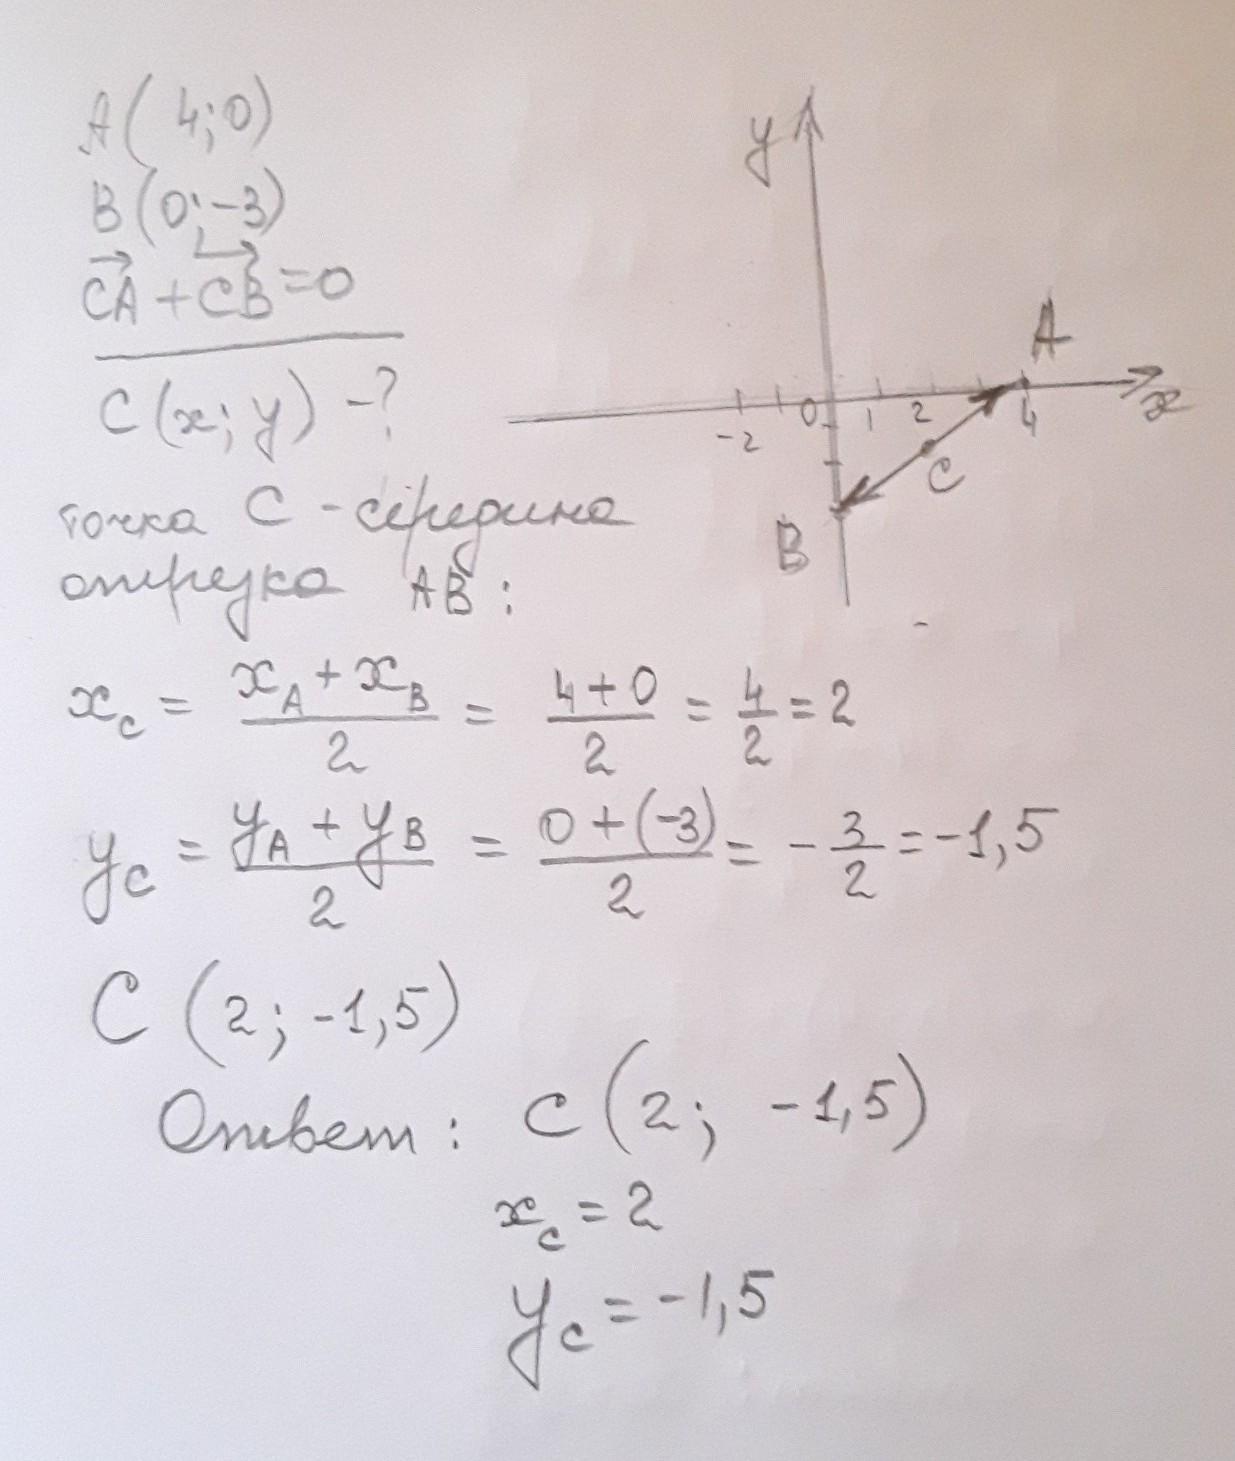 A(4;0)
B(0;-3)
CA + CB = 0
C(x; y) - ?
y
A
x
-2
0
1
2
4
C
B
точка C - середина
отрезка AB:
x_C = (x_A + x_B)/2 = (4+0)/2 = 4/2 = 2
y_C = (y_A + y_B)/2 = (0+(-3))/2 = -3/2 = -1,5
C (2; -1,5)
Ответ: C (2; -1,5)
x_C = 2
y_C = -1,5